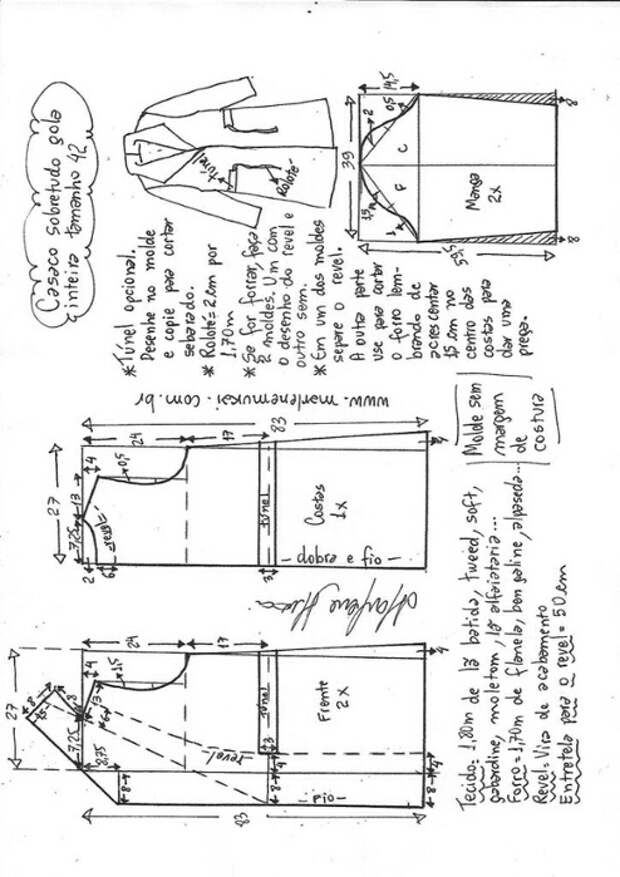 Casaco sobretudo gola
inteira tamanho 42
* Túnel opcional.
Desenhe no molde
e copie para cortar
sebarado.
* Roloté = 2cm por
1,70m
* Se for forrar, faça
2 moldes. Um com
o desenho do revel e
outro sem.
* Em um dos moldes
separe o revel.
A outra parte
use para cortar
o forro lem-
brando de
acrescentar
15 cm no
centro das
costas para
dar uma
prega.
túnel
Roloté
14,5
39
59,5
2
0,5
1,5
1
C
F
Manga
2x
8
8
www.marlenemukai.com.br
83
24
17
27
13
4
7,25
0,5
revel
2
6
3
túnel
Costas
1x
dobra e fio
4
Marlene Mukai
24
17
27
13
4
1,5
7,25
8
8,75
6
3
4
túnel
Frente
2x
revel
fio
8
8
8
4
4
83
Molde sem
margem
de
costura
Tecido: 1,80m de lã batida, tweed, soft,
gabardine, moletom, lã alfaiataria...
Forro = 1,70m de flanela, bengaline, alpaseda...
Revel = Vira de acabamento
Entretela para o revel = 50cm